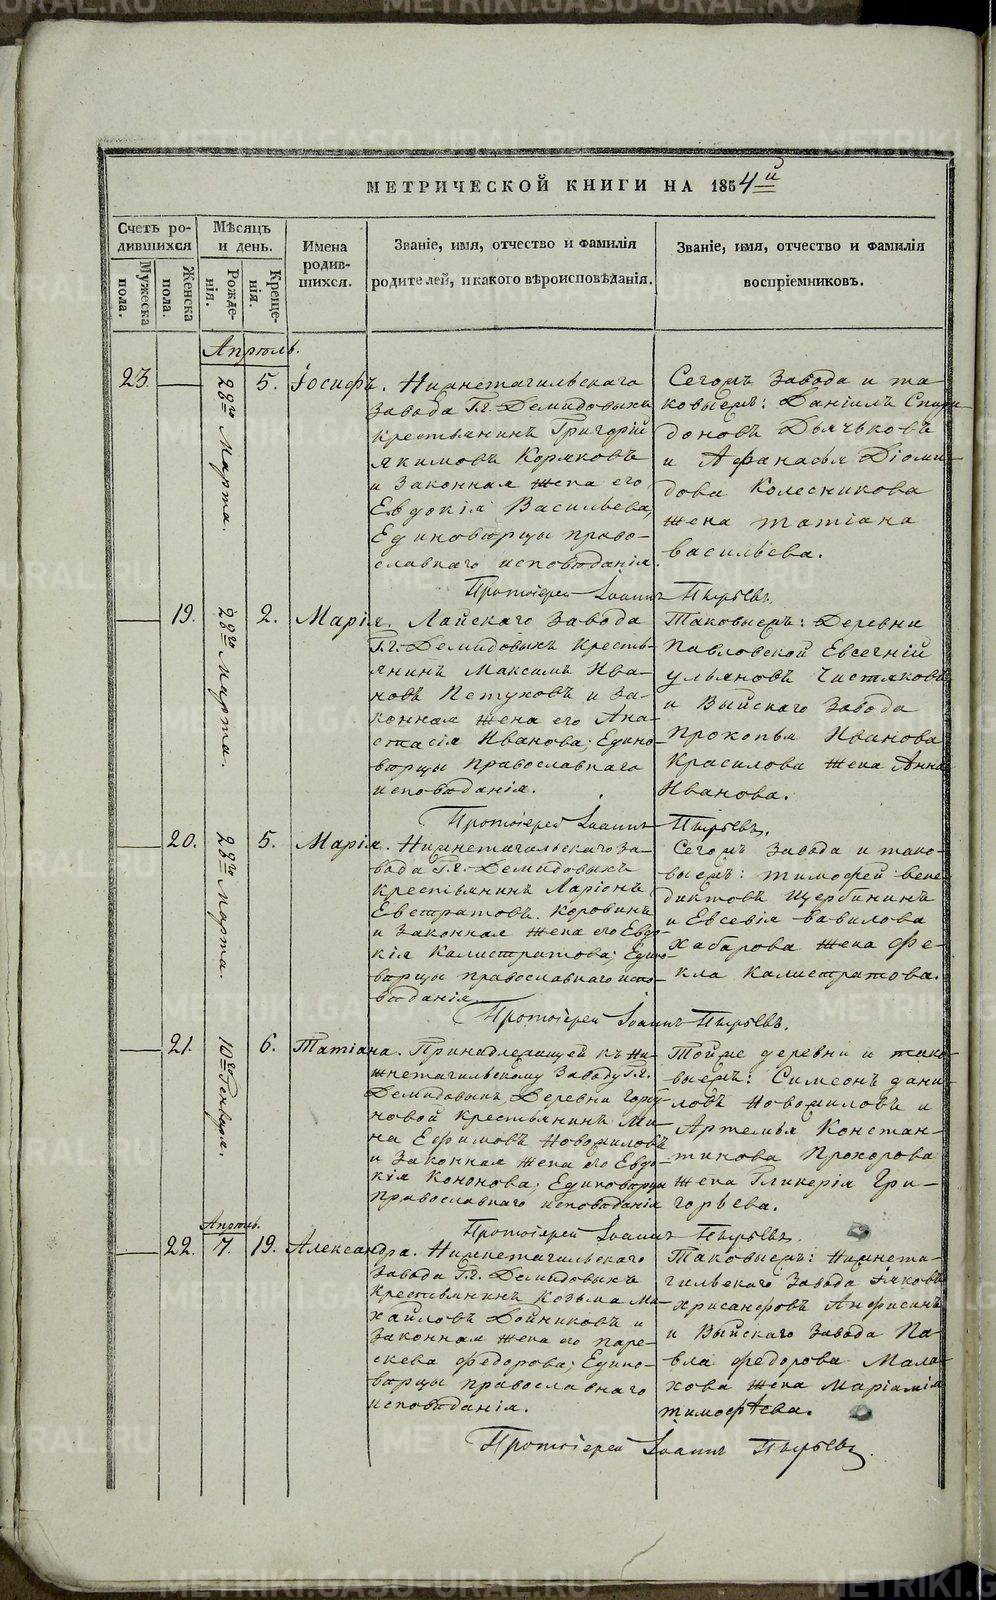 МЕТРИЧЕСКОЙ КНИГИ НА 1854й
Счетъ ро-
дившихся
Мужеска
пола.
Женска
пола.
Мѣсяцъ
и день.
Рожде-
нія.
Креще-
нія.
Имена
родив-
шихся.
Званіе, имя, отчество и фамилія
родителей, и какого вѣроисповѣданія.
Званіе, имя, отчество и фамилія
воспріемниковъ.
Апрѣль.
23.
28го Марта.
5.
Іосифъ.
Нижнетагильскаго
завода Г.г. Демидовыхъ
крестьянинъ Григорій
Якимовъ Коряковъ
и законная жена его
Евдокія Васильева,
Единовѣрцы право-
славнаго исповѣданія.
Сегожъ завода и та-
ковыежъ: Даніилъ Спири-
доновъ Дьячьковъ
и Афанасья Діоми-
дова Колесникова
жена татіана
васильева.
Протоіерей Іоаннъ Пырьевъ.
19.
28го Марта.
2.
Марія.
Лайскаго завода
Г.г. Демидовыхъ кресть-
янинъ Максимъ Ива-
новъ Петуховъ и за-
конная жена его Ана-
стасія Иванова; Едино-
вѣрцы православнаго
исповѣданія.
Таковыежъ: Деревни
Павловской Евсегній
ульяновъ Чистяковъ
и Выйскаго завода
Прокопья Иванова
Красилова жена Анна
Иванова.
Протоіерей Іоаннъ Пырьевъ.
20.
28го Марта.
5.
Марія.
Нижнетагильскаго за-
вода Г.г. Демидовыхъ
крестьянинъ Ларіонъ
Евстратовъ. Коровинъ
и законная жена его Евдо-
кія Калистратова; Едино-
вѣрцы православнаго испо-
вѣданія.
Сегожъ завода и тако-
выежъ: тимофей вене-
диктовъ Щербининъ
и Евсевія вавилова
Хабарова жена фе-
кла Калистратова.
Протоіерей Іоаннъ Пырьевъ.
21.
6.
Татіана.
Принадлежащей къ Ни-
жнетагильскому заводу Г.г.
Демидовыхъ, Деревни Горбу-
новой крестьянинъ Ми-
на Ефимовъ Новожиловъ
и законная жена его Евдо-
кія Кононова; Единовѣрцы
православнаго исповѣданія
Тойже деревни и тако-
выежъ: Симеонъ дани-
ловъ Новожиловъ и
Артемья Констан-
тинова Прохорова
жена Гликерія Гри-
горьева.
Протоіерей Іоаннъ Пырьевъ.
22.
Апрѣль.
7.
19.
Александра.
Нижнетагильскаго
завода Г.г. Демидовыхъ
крестьянинъ Козьма Ми-
хайловъ Дойниковъ и
законная жена его паре-
скева федорова; Едино-
вѣрцы православнаго
исповѣданія.
Таковыежъ: Нижнета-
гильскаго завода Іяковъ
хрисанфовъ Анфисинъ
и Выйскаго завода Па-
вла федорова Мала-
хова жена Маріамія
тимофѣева.
Протоіерей Іоаннъ Пырьевъ.
METRIKI.GASO-URAL.RU